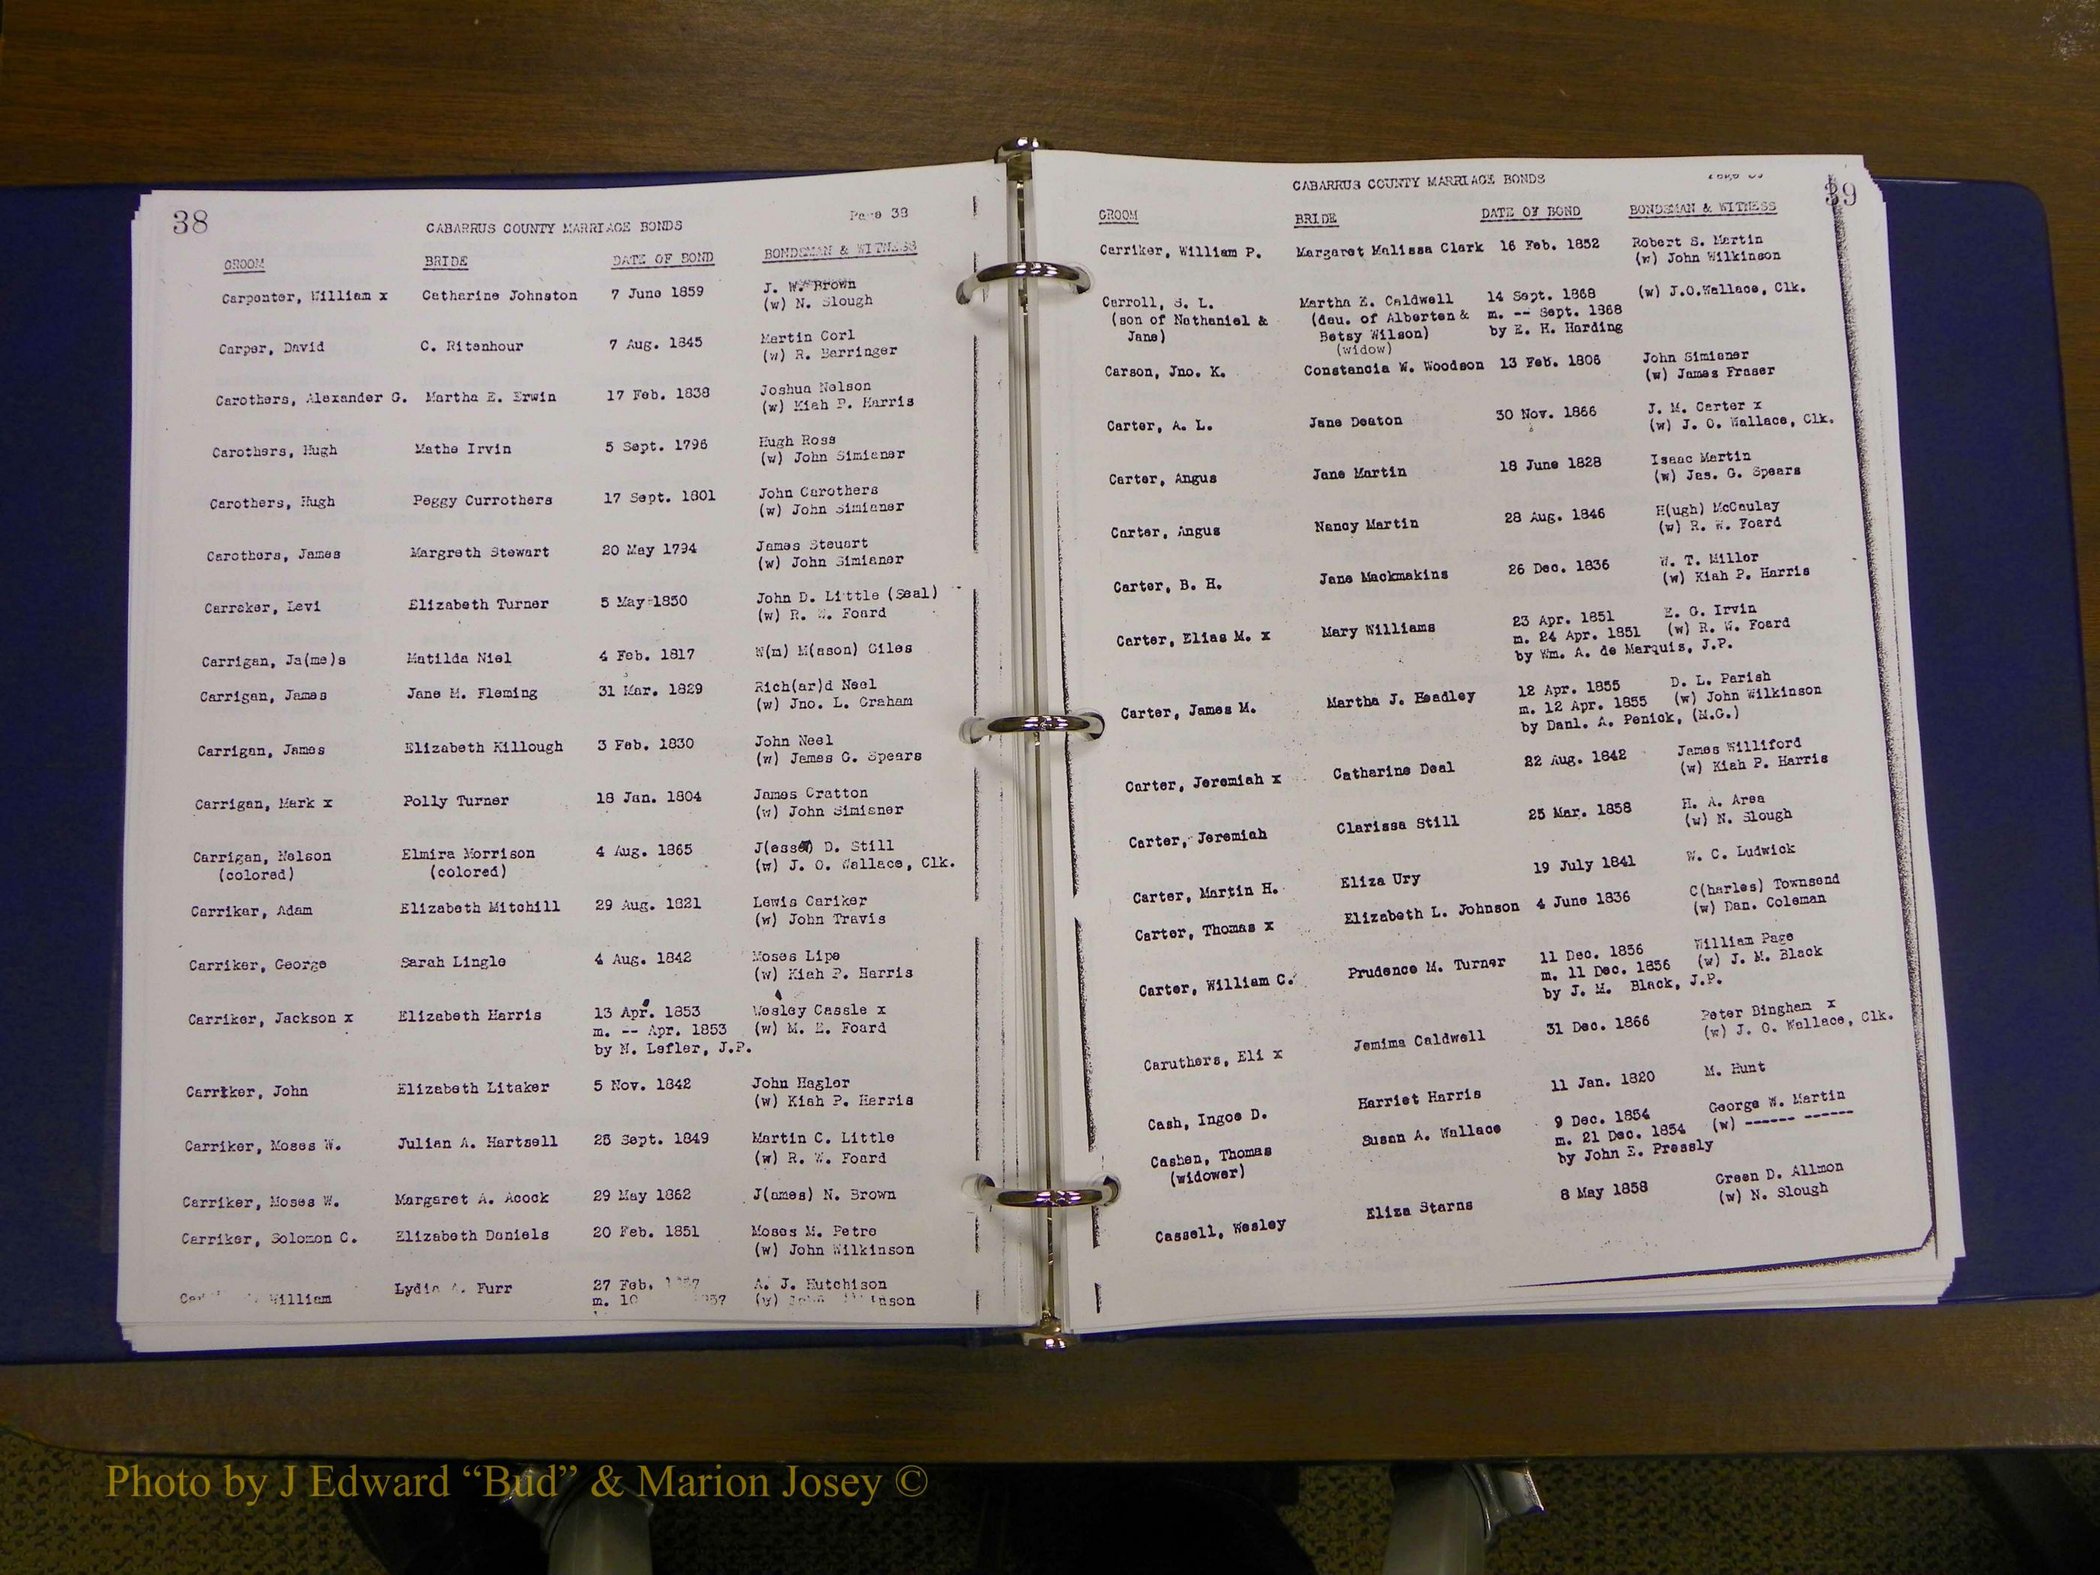 38
Page 38
CABARRUS COUNTY MARRIAGE BONDS
GROOM BRIDE DATE OF BOND BONDSMAN & WITNESS
Carpenter, William x Catharine Johnston 7 June 1859 J. W. Brown
(w) N. Slough
Carper, David C. Ritenhour 7 Aug. 1845 Martin Corl
(w) R. Barringer
Carothers, Alexander G. Martha E. Erwin 17 Feb. 1838 Joshua Nelson
(w) Kiah P. Harris
Carothers, Hugh Mathe Irvin 5 Sept. 1796 Hugh Ross
(w) John Simianer
Carothers, Hugh Peggy Currothers 17 Sept. 1801 John Carothers
(w) John Simianer
Carothers, James Margreth Stewart 20 May 1794 James Steuart
(w) John Simianer
Carreker, Levi Elizabeth Turner 5 May 1850 John D. Little (Seal)
(w) R. W. Foard
Carrigan, Ja(me)s Matilda Niel 4 Feb. 1817 W(m) M(ason) Giles
Carrigan, James Jane M. Fleming 31 Mar. 1829 Rich(ar)d Neel
(w) Jno. L. Graham
Carrigan, James Elizabeth Killough 3 Feb. 1830 John Neel
(w) James G. Spears
Carrigan, Mark x Polly Turner 18 Jan. 1804 James Gratton
(w) John Simianer
Carrigan, Nelson Elmira Morrison 4 Aug. 1865 J(esse) D. Still
(colored) (colored) (w) J. O. Wallace, Clk.
Carriker, Adam Elizabeth Mitchill 29 Aug. 1821 Lewis Cariker
(w) John Travis
Carriker, George Sarah Lingle 4 Aug. 1842 Moses Lipe
(w) Kiah P. Harris
Carriker, Jackson x Elizabeth Harris 13 Apr. 1853 Wesley Cassle x
m. -- Apr. 1853 (w) M. E. Foard
by N. Lefler, J.P.
Carriker, John Elizabeth Litaker 5 Nov. 1842 John Hagler
(w) Kiah P. Harris
Carriker, Moses W. Julian A. Hartsell 25 Sept. 1849 Martin C. Little
(w) R. W. Foard
Carriker, Moses W. Margaret A. Acock 29 May 1862 J(ames) N. Brown
Carriker, Solomon C. Elizabeth Daniels 20 Feb. 1851 Moses M. Petre
(w) John Wilkinson
William Lydia Furr 27 Feb. A. J. Hutchison
m. (w)
39
CABARRUS COUNTY MARRIAGE BONDS
GROOM BRIDE DATE OF BOND BONDSMAN & WITNESS
Carriker, William P. Margaret Malissa Clark 16 Feb. 1852 Robert S. Martin
(w) John Wilkinson
Carroll, S. L. Martha E. Caldwell 14 Sept. 1868 (w) J.O.Wallace, Clk.
(son of Nathaniel & (dau. of Alberten & m. -- Sept. 1868
Jane) Betsy Wilson) by E. H. Harding
(widow)
Carson, Jno. K. Constancia W. Woodson 13 Feb. 1806 John Simianer
(w) James Fraser
Carter, A. L. Jane Deaton 30 Nov. 1866 J. M. Carter x
(w) J. O. Wallace, Clk.
Carter, Angus Jane Martin 18 June 1828 Isaac Martin
(w) Jas. G. Spears
Carter, Angus Nancy Martin 28 Aug. 1846 H(ugh) McCaulay
(w) R. W. Foard
Carter, B. H. Jane Mackmakins 26 Dec. 1836 W. T. Miller
(w) Kiah P. Harris
Carter, Elias M. x Mary Williams 23 Apr. 1851 E. G. Irvin
m. 24 Apr. 1851 (w) R. W. Foard
by Wm. A. de Marquis, J.P.
Carter, James M. Martha J. Headley 12 Apr. 1855 D. L. Parish
m. 12 Apr. 1855 (w) John Wilkinson
by Danl. A. Penick, (M.G.)
Carter, Jeremiah x Catharine Deal 22 Aug. 1842 James Williford
(w) Kiah P. Harris
Carter, Jeremiah Clarissa Still 25 Mar. 1858 H. A. Area
(w) N. Slough
Carter, Martin H. Eliza Ury 19 July 1841 W. C. Ludwick
Carter, Thomas x Elizabeth L. Johnson 4 June 1836 C(harles) Townsend
(w) Dan. Coleman
Carter, William C. Prudence M. Turner 11 Dec. 1856 William Page
m. 11 Dec. 1856 (w) J. M. Black
by J. M. Black, J.P.
Caruthers, Eli x Jemima Caldwell 31 Dec. 1866 Peter Bingham x
(w) J. O. Wallace, Clk.
Cash, Ingoe D. Harriet Harris 11 Jan. 1820 M. Hunt
Cashen, Thomas Susan A. Wallace 9 Dec. 1854 George W. Martin
(widower) m. 21 Dec. 1854 (w) ------ ------
by John E. Pressly
Cassell, Wesley Eliza Starns 8 May 1858 Green D. Allmon
(w) N. Slough
Photo by J Edward “Bud” & Marion Josey ©